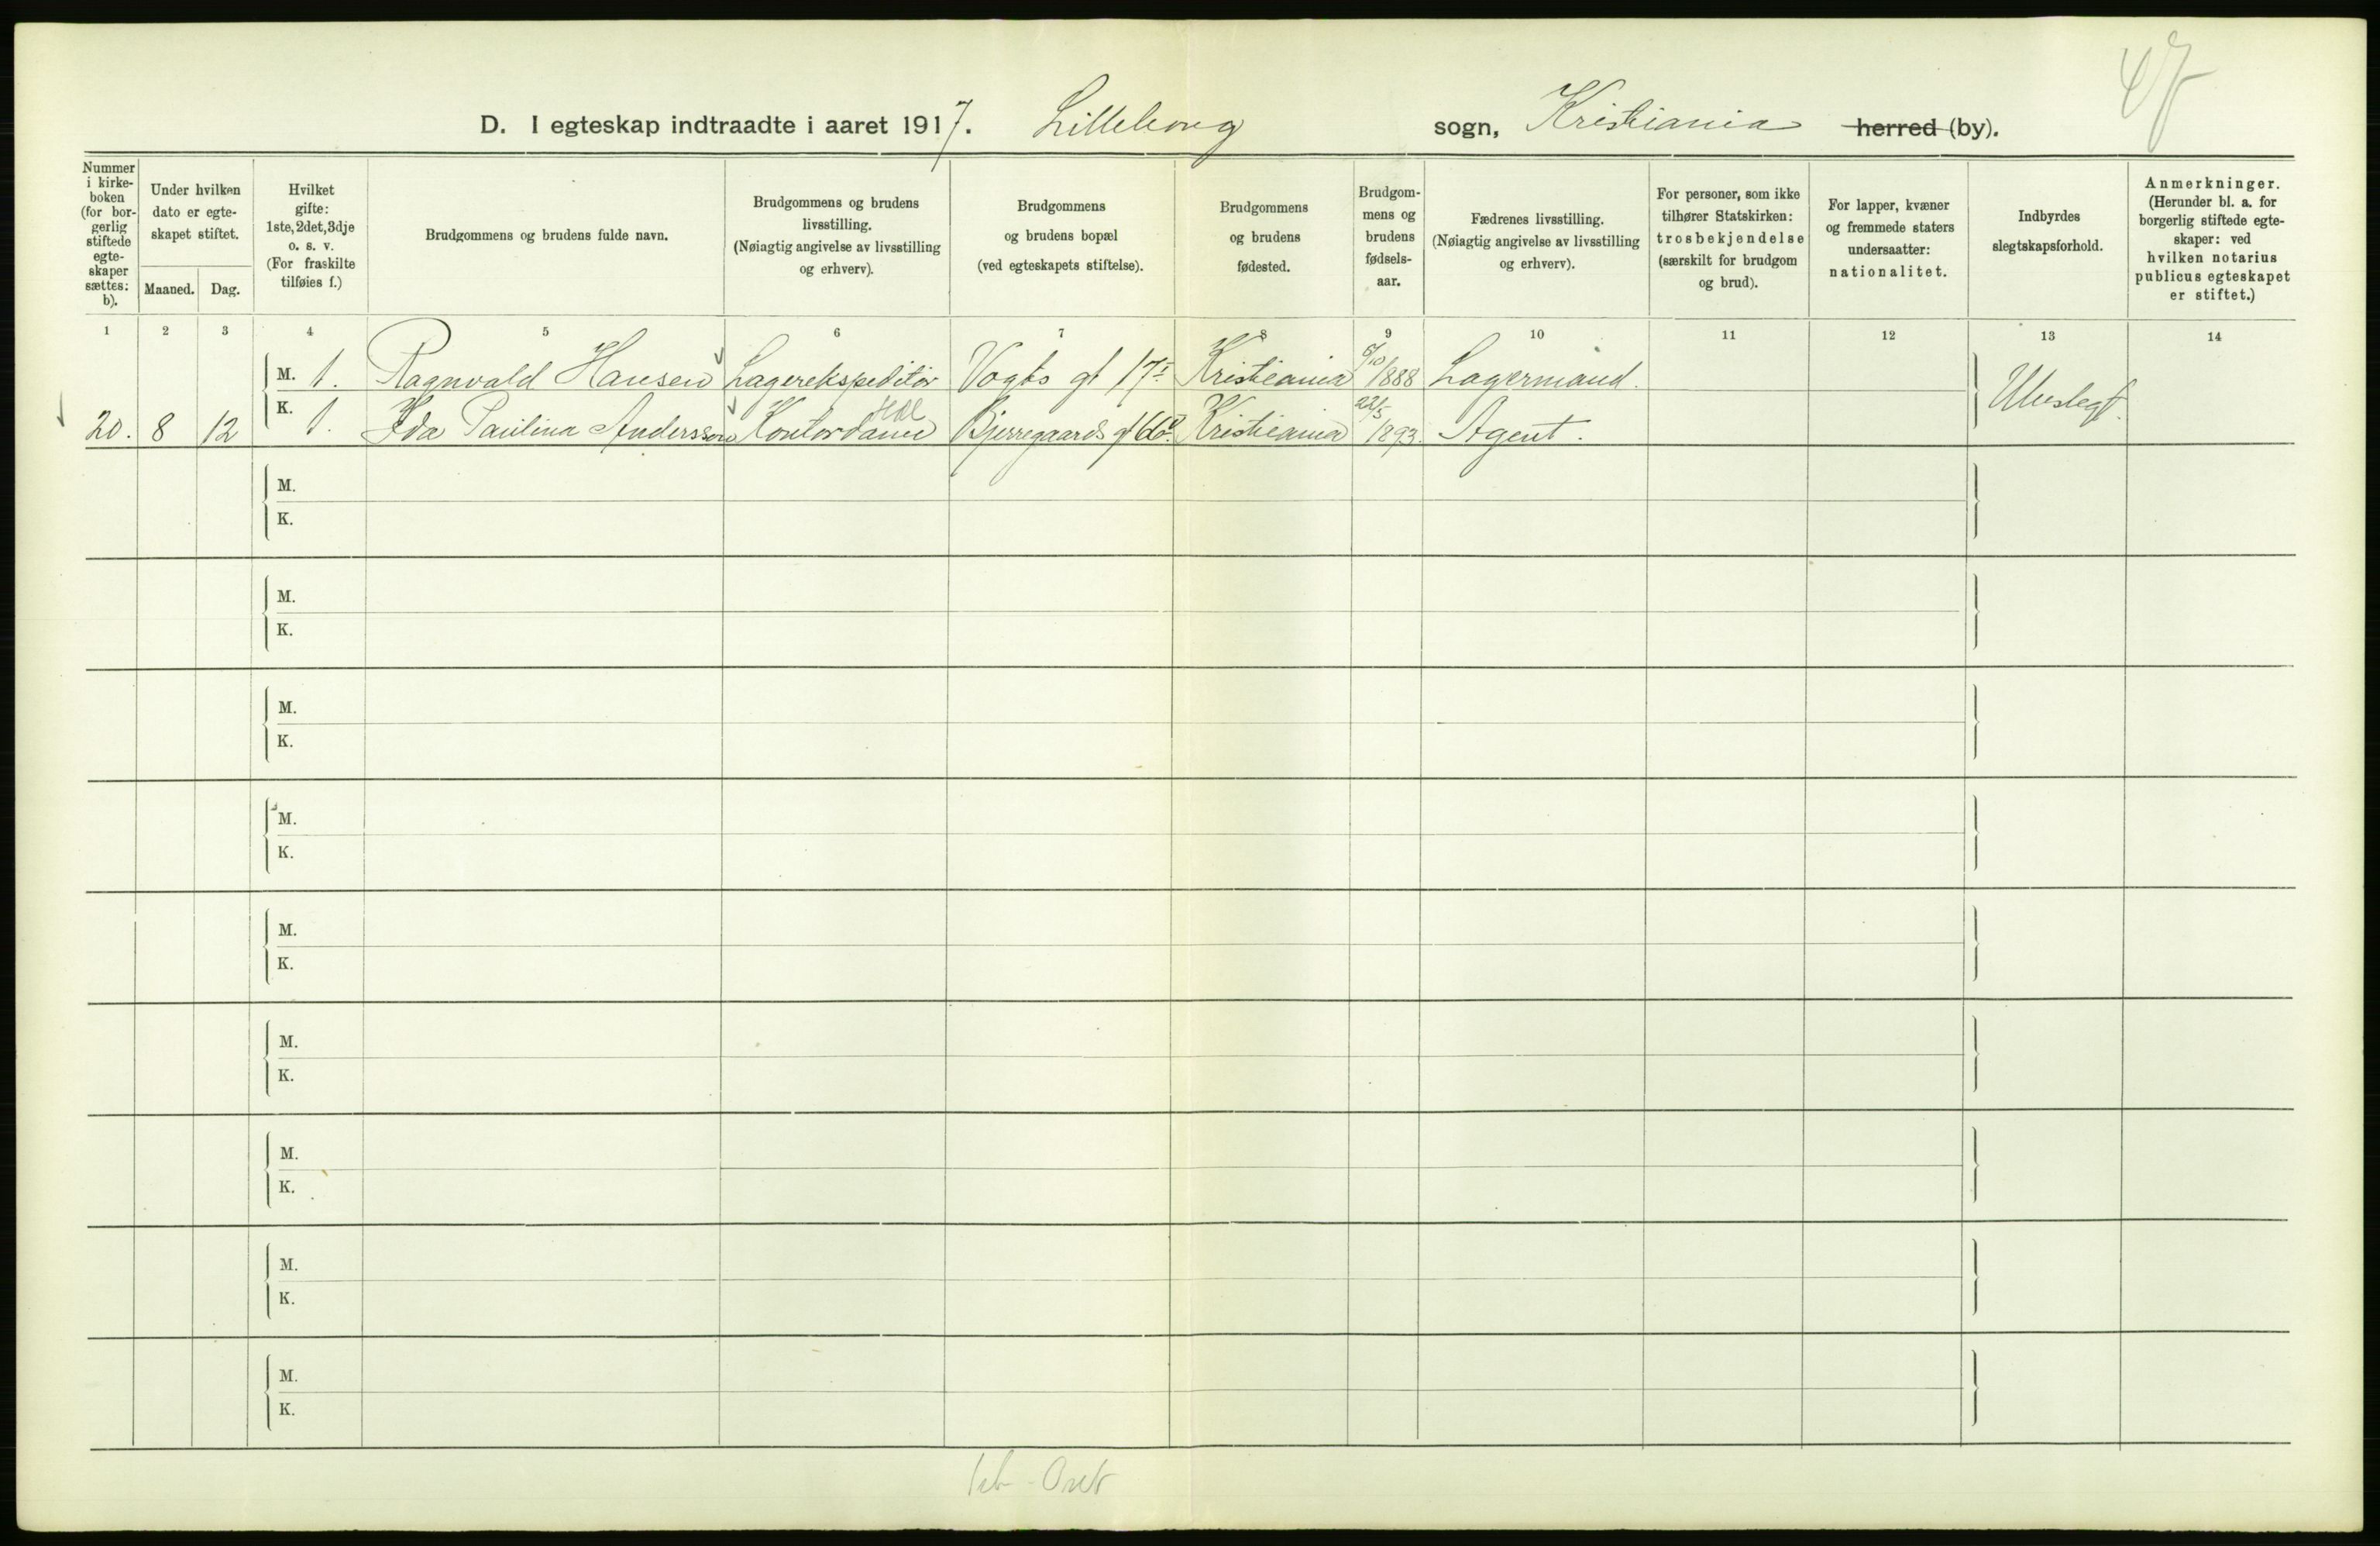 47
D. I egteskap indtraadte i aaret 1917. Lilleborg sogn, Kristiania herred (by).
Nummer i kirke-boken (for bor-gerlig stiftede egte-skaper sættes: b).
Under hvilken dato er egte-skapet stiftet.
Maaned. Dag.
Hvilket gifte: 1ste, 2det, 3dje o. s. v. (For fraskilte tilføies f.)
Brudgommens og brudens fulde navn.
Brudgommens og brudens livsstilling. (Nøiagtig angivelse av livsstilling og erhverv).
Brudgommens og brudens bopæl (ved egteskapets stiftelse).
Brudgommens og brudens fødested.
Brudgom-mens og brudens fødsels-aar.
Fædrenes livsstilling. (Nøiagtig angivelse av livsstilling og erhverv).
For personer, som ikke tilhører Statskirken: trosbekjendelse (særskilt for brudgom og brud).
For lapper, kvæner og fremmede staters undersaatter: nationalitet.
Indbyrdes slegtskapsforhold.
Anmerkninger. (Herunder bl. a. for borgerlig stiftede egte-skaper: ved hvilken notarius publicus egteskapet er stiftet.)
1 2 3 4 5 6 7 8 9 10 11 12 13 14
M. 1. Ragnvald Hansen Lagerekspeditør Vogts gt 17 I Kristiania 6/10 1888 Lagermand.
20. 8 12 K. 1. Ida Paulina Andersson Kontordame Bjerregaards gt 60 Kristiania 22/5 1893. Agent. Ubeslegt.
M.
K.
M.
K.
M.
K.
M.
K.
M.
K.
M.
K.
M.
K.
M.
K.
M.
K.